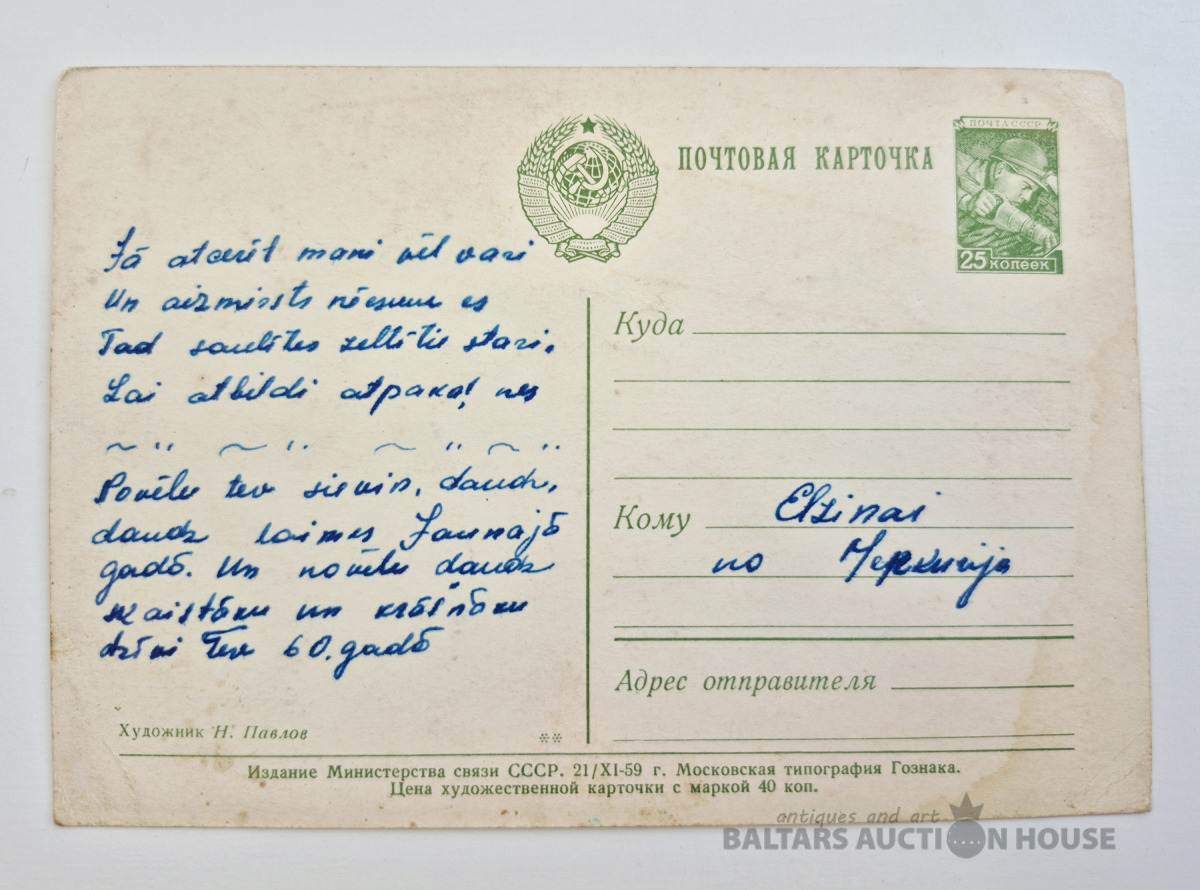 ПОЧТОВАЯ КАРТОЧКА
ПОЧТА СССР
25 копеек
Jā atcerēt mani vēl vari
Un aizmirsts neesmu es
Tad saulītes zeltītie stari,
Lai atbildi atpakaļ nes
Novēlu tev sieviņ, daudz,
daudz laimes Jaunajā
gadā. Un novēlu daudz
skaistāku un krāšņāku
dzīvi Tev 60. gadā
Куда
Кому Elziņai
no
Адрес отправителя
Художник Н. Павлов
**
Издание Министерства связи СССР. 21/XI-59 г. Московская типография Гознака.
Цена художественной карточки с маркой 40 коп.
antiques and art
BALTARS AUCTION HOUSE